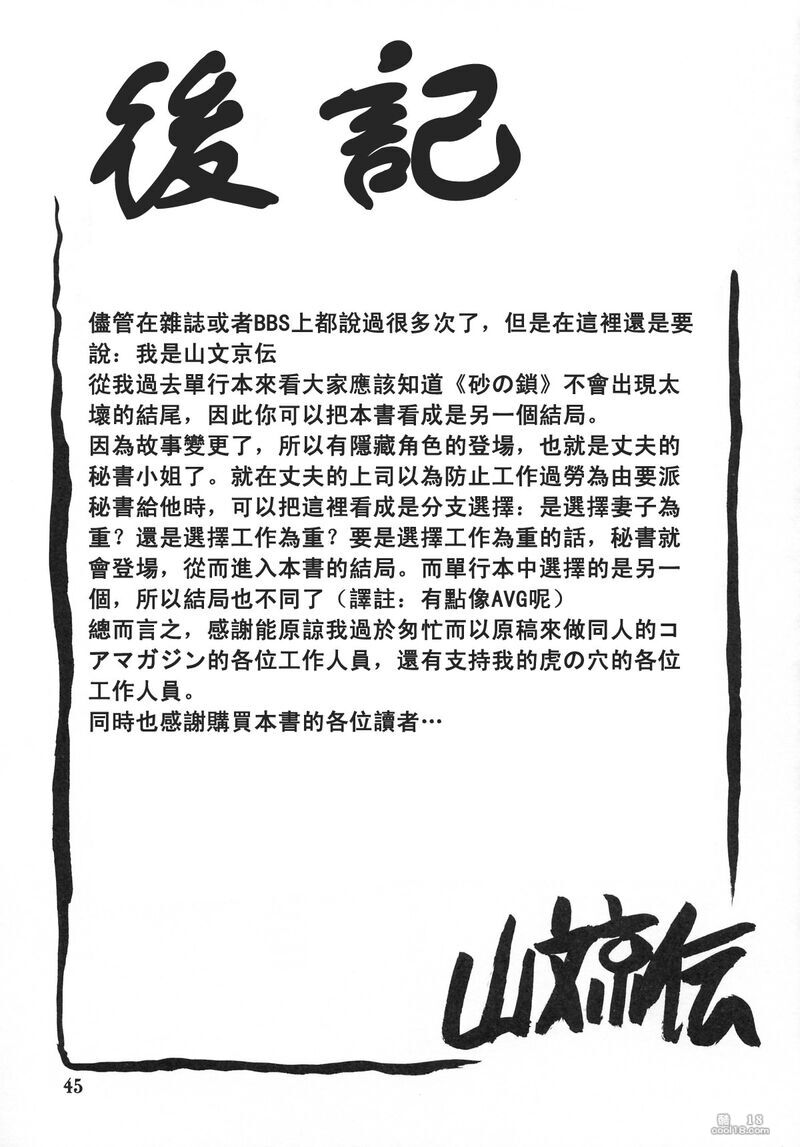 後記
儘管在雜誌或者BBS上都說過很多次了，但是在這裡還是要
說：我是山文京伝
從我過去單行本來看大家應該知道《砂の鎖》不會出現太
壞的結尾，因此你可以把本書看成是另一個結局。
因為故事變更了，所以有隱藏角色的登場，也就是丈夫的
秘書小姐了。就在丈夫的上司以為防止工作過勞為由要派
秘書給他時，可以把這裡看成是分支選擇：是選擇妻子為
重？還是選擇工作為重？要是選擇工作為重的話，秘書就
會登場，從而進入本書的結局。而單行本中選擇的是另一
個，所以結局也不同了（譯註：有點像AVG呢）
總而言之，感謝能原諒我過於匆忙而以原稿來做同人的コ
アマガジン的各位工作人員，還有支持我的虎の穴的各位
工作人員。
同時也感謝購買本書的各位讀者…
山文京伝
45
酷 18
cool18.com